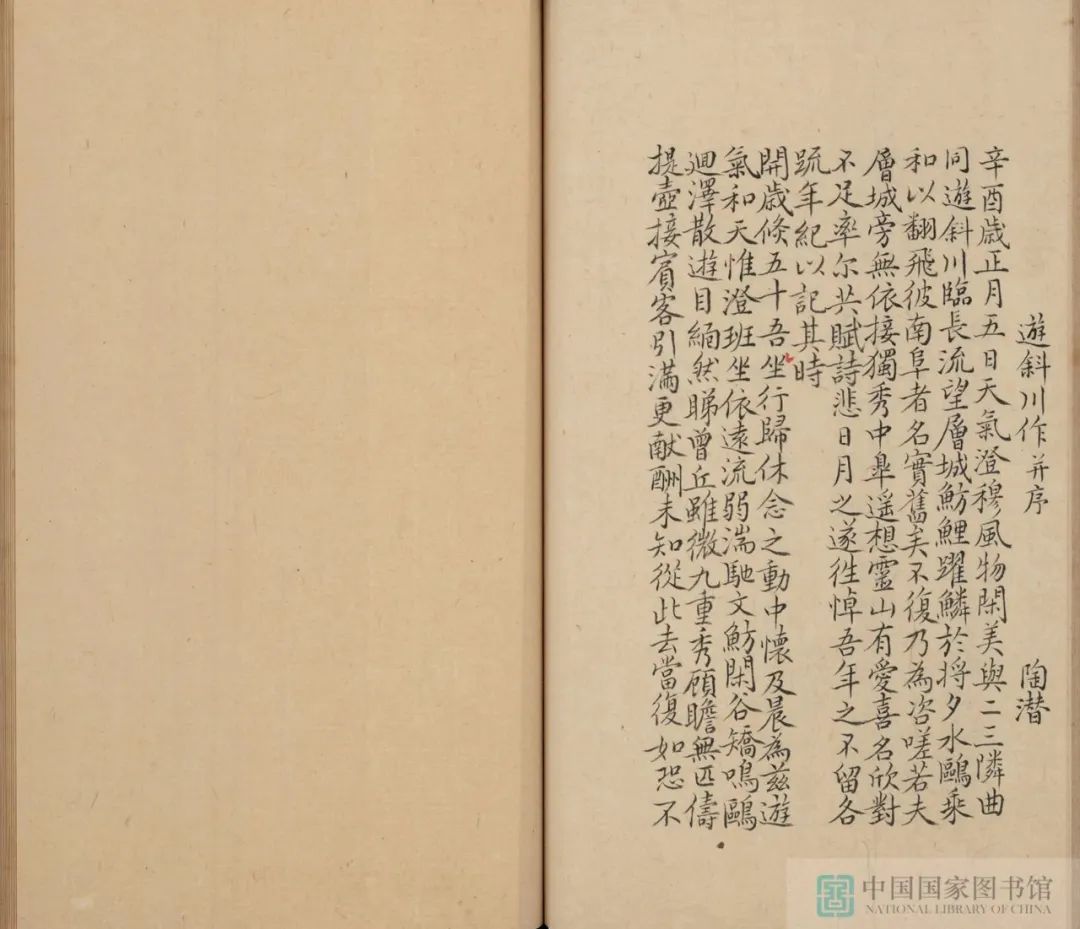 遊斜川作并序 陶潜
辛酉歳正月五日天氣澄穆風物閑美與二三隣曲
同遊斜川臨長流望層城魴鯉躍鱗於将夕水鷗乘
和以翻飛彼南阜者名實舊矣不復乃為咨嗟若夫
層城旁無依接獨秀中臯遥想靈山有愛喜名欣對
不足率尔共賦詩悲日月之遂徃悼吾年之不留各
䟽年紀以記其時
開歳倐五十吾坐行歸休念之動中懷及晨為兹遊
氣和天惟澄班坐依遠流弱湍馳文魴閑谷矯鳴鷗
迴澤散遊目緬然睇曾丘雖微九重秀顧瞻無匹儔
提壺接賓客引滿更献酬未知從此去當復如恐不
中国国家图书馆
NATIONAL LIBRARY OF CHINA